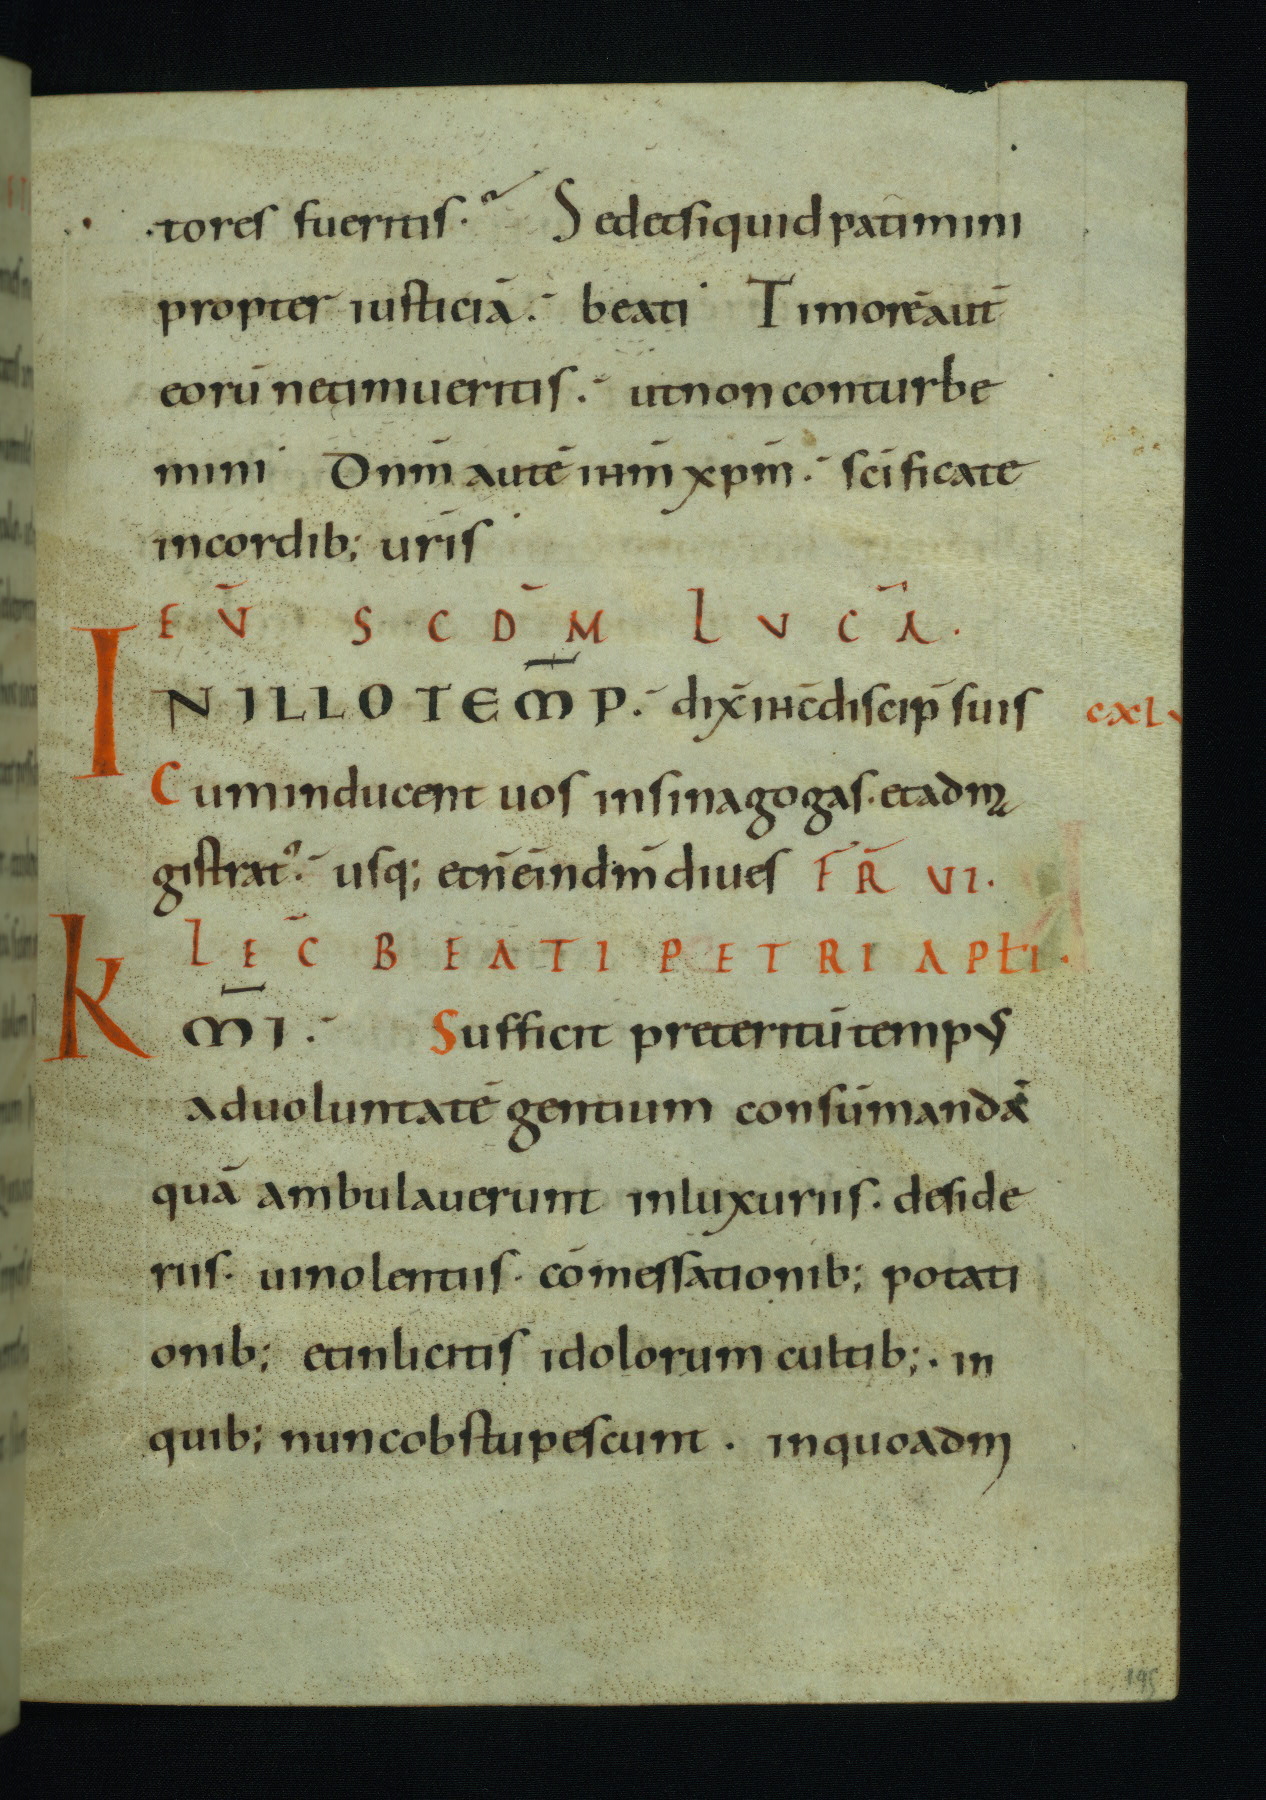 tores fueritis. Sed et si quid patimini
propter iusticiā. beati. Timorē aut̄
eorū ne timueritis. ut non conturbe
mini. Dnm̄ autē ihm̄ xpm̄. scīficate
in cordib; uris̄
EV̄ SCD̄M LVCĀ.
IN ILLO TEM̄P. dix̄ ihc̄ discip̄ suis
cxlv
Cum inducent uos in sinagogas. et ad m̨
gistrat᾽. usq; et n̄ ē in dm̄ diues FR̄ VI.
LEC̄ BEATI PETRI APƚI.
KM̄I. Sufficit preteritū tempus
ad uoluntatē gentium consūmandā
quā ambulauerunt in luxuriis. deside
riis. uinolentiis. cōmessationib; potati
onib; et inlicitis idolorum cultib;. in
quib; nunc obstupescunt. in quo adm
195